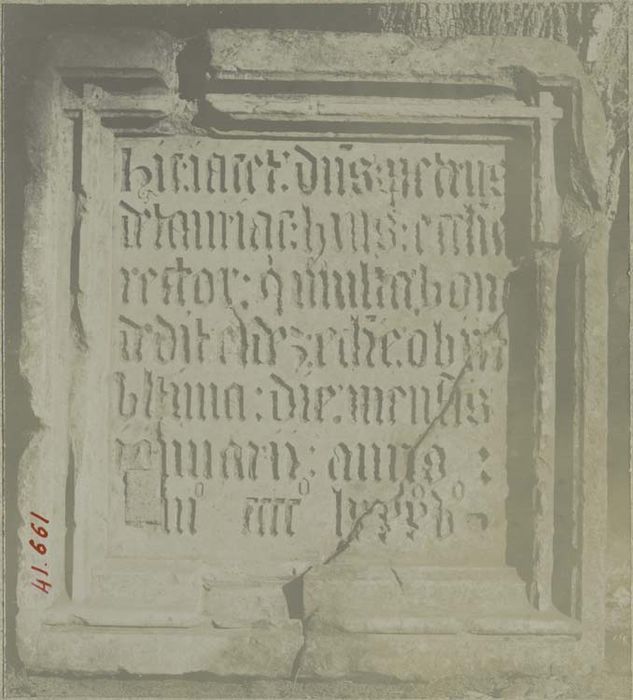 hic : iacet : dns petrus
de lauriac : huius : ecclie
rector : q multa bona
dedit eidez ecclie obiit
vltima : die : mensis
ianuarii : anno :
mº ccccº lxxxº vº
41.661